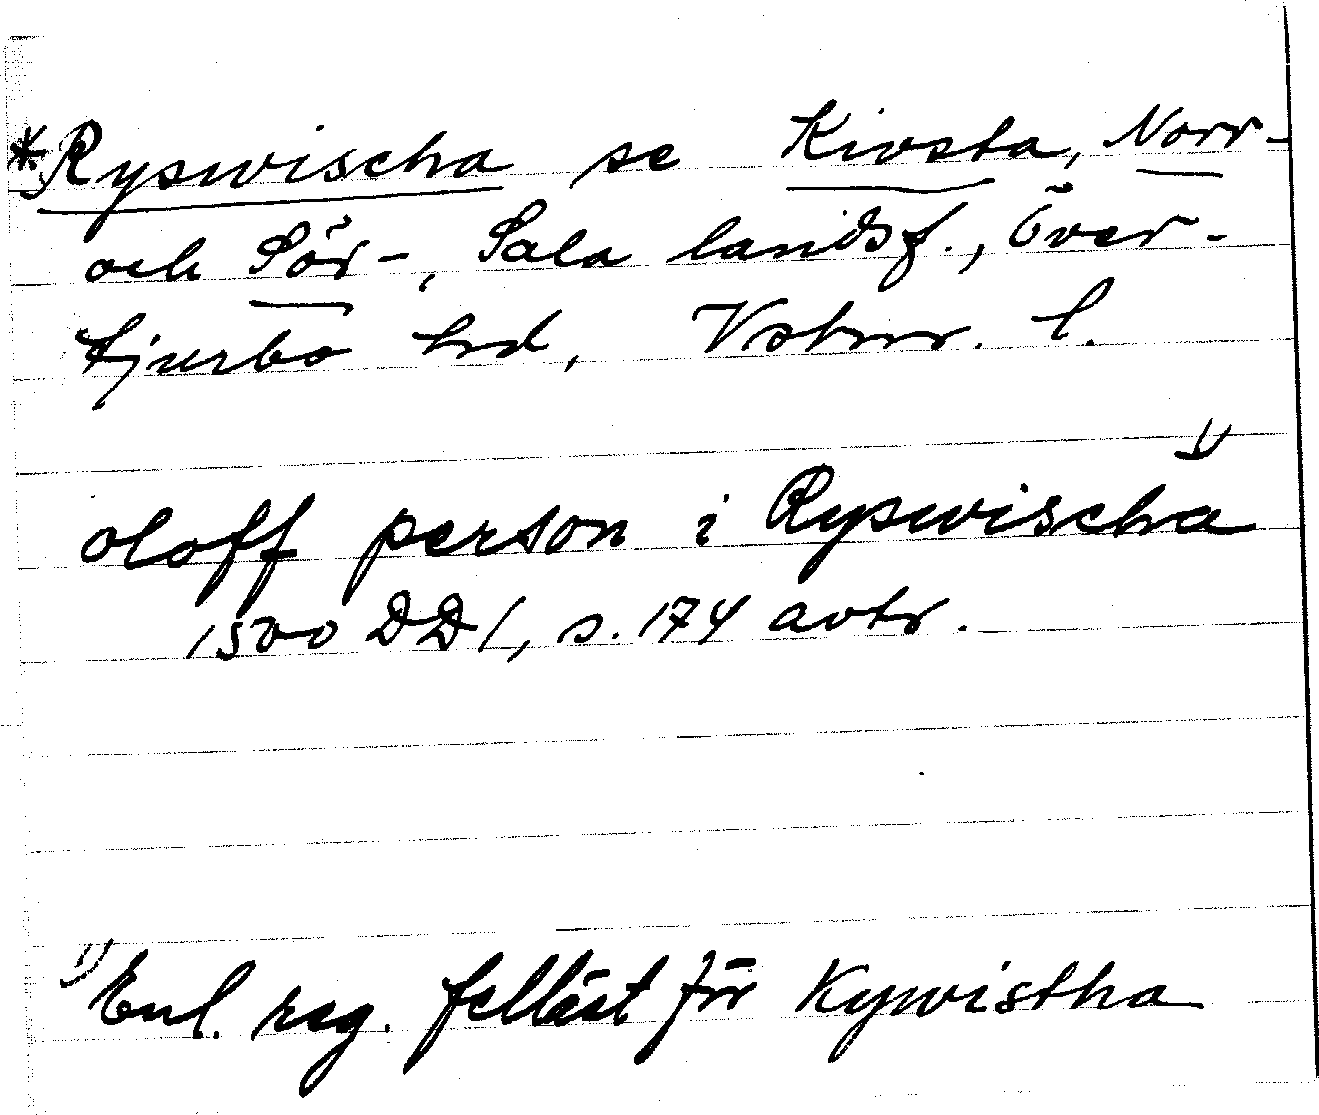 *Ryswischa se Kivsta, Norr-
och Sör-, Sala landsf., Över-
tjurbo hd, Vstmr. l.
oloff person i Ryswischa 1)
1500 DD 1, s. 174 avtr.
1) Enl. reg. felläst för Kywistha